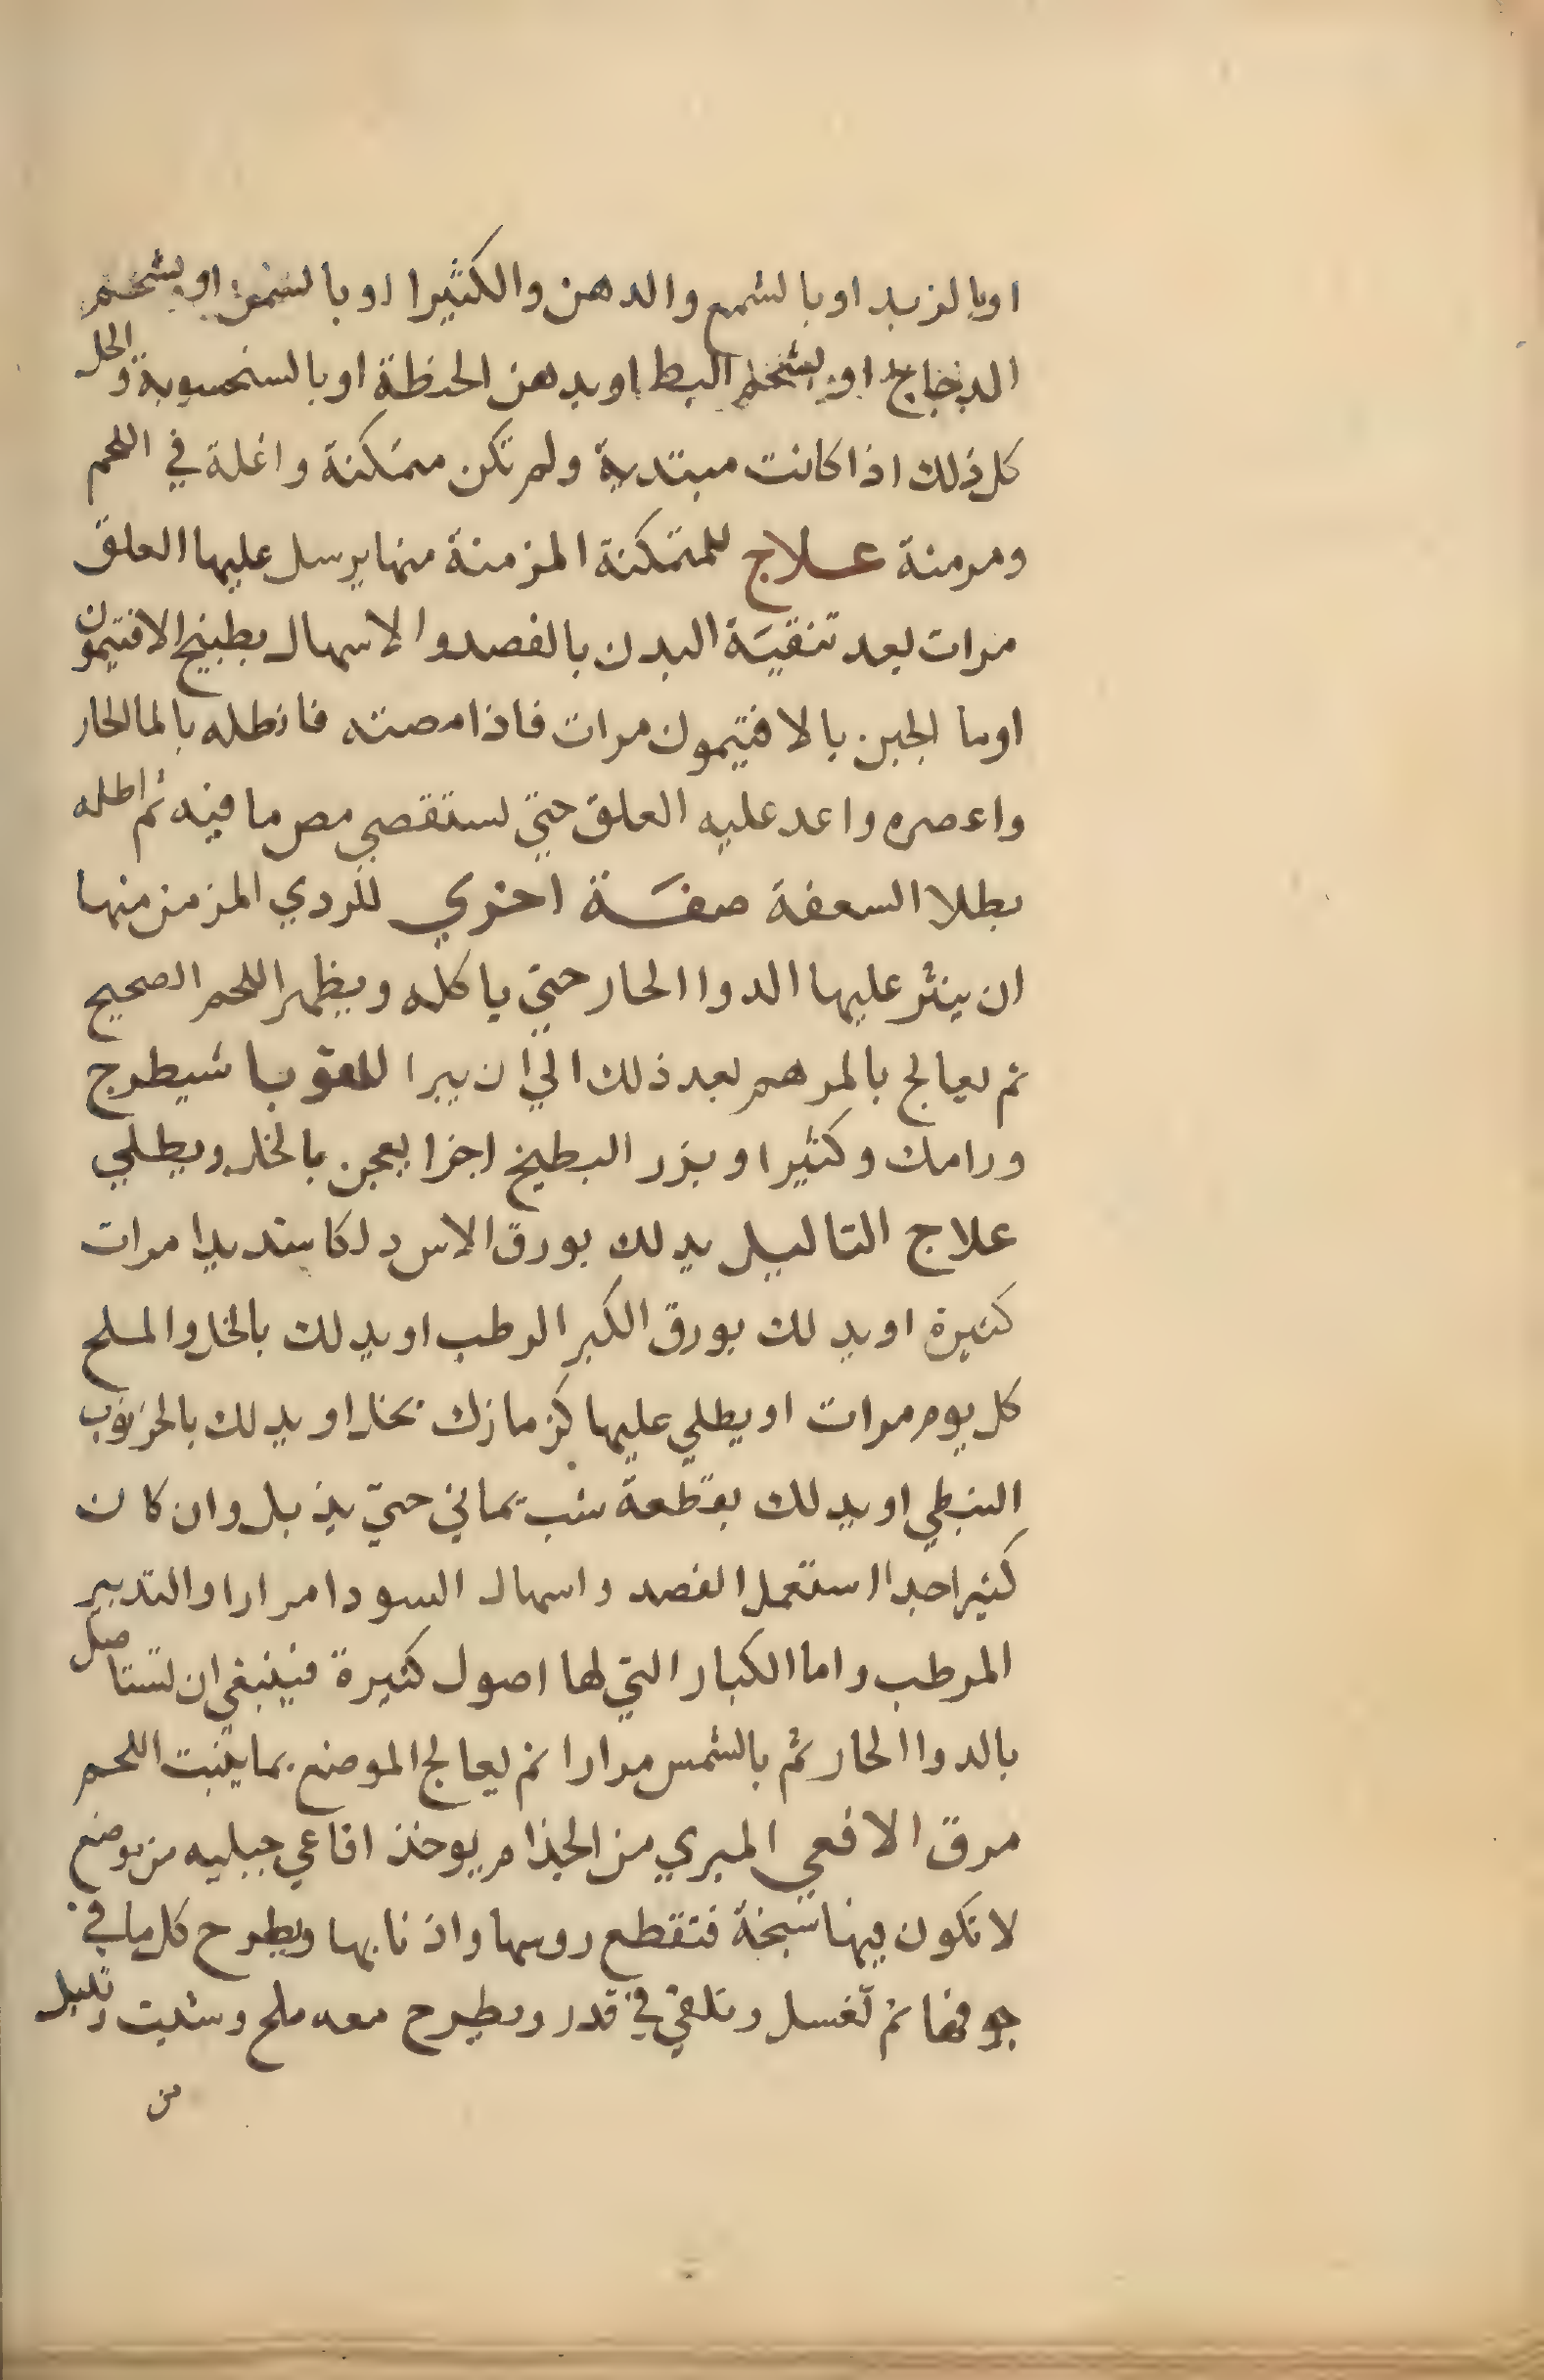 او بالزبد او بالشمع والدهن والكثيرا او بالشمع او بشحم
الدجاج او بشحم البط او بدهن الحنظة او بالسنحسبوية والخل
كل ذلك اذا كانت مبتدية ولم تكن متمكنة واغلة في اللحم
ومزمنة علاج للمتمكنة المزمنة منها يرسل عليها العلق
مرات بعد تنقية البدن بالفصد والاسهال بطبيخ الافتيمون
او ما الجبن بالافتيمون مرات فاذا مصته فانطله بالما الحار
واعصره واعد عليه العلق حتي تستقصي مص ما فيه ثم اطله
بطلا السعفة صفة اخري للردي المزمن منها
ان ينثر عليها الدوا الحار حتي ياكله ويظهر اللحم الصحيح
ثم يعالج بالمرهم بعد ذلك الي ان يبرا للقوبا شيطرج
ورامك وكثيرا وبزر البطيخ اجزا يعجن بالخل ويطلي
علاج التاليل يدلك بورق الاس دلكا شديدا مرات
كثيرة او يدلك بورق الكبر الرطب او يدلك بالخل والملح
كل يوم مرات او يطلي عليها كزمازك بخل او يدلك بالخرنوب
النبطي او يدلك بقطعة شب يماني حتي يذبل وان كان
كثيرا جدا استعمل الفصد واسهال السودا مرارا والتدبير
المرطب واما الكبار التي لها اصول كثيرة فينبغي ان تستاصل
بالدوا الحار ثم بالشمس مرارا ثم يعالج الموضع بما ينبت اللحم
مرق الافعي المبري من الجذام يوخذ افاعي جبليه من موضع
لا تكون فيها سبخة فتقطع روسها واذنابها ويطرح كل ما في
جوفها ثم تغسل وتلقي في قدر ويطرح معه ملح وشبت وقليل
من